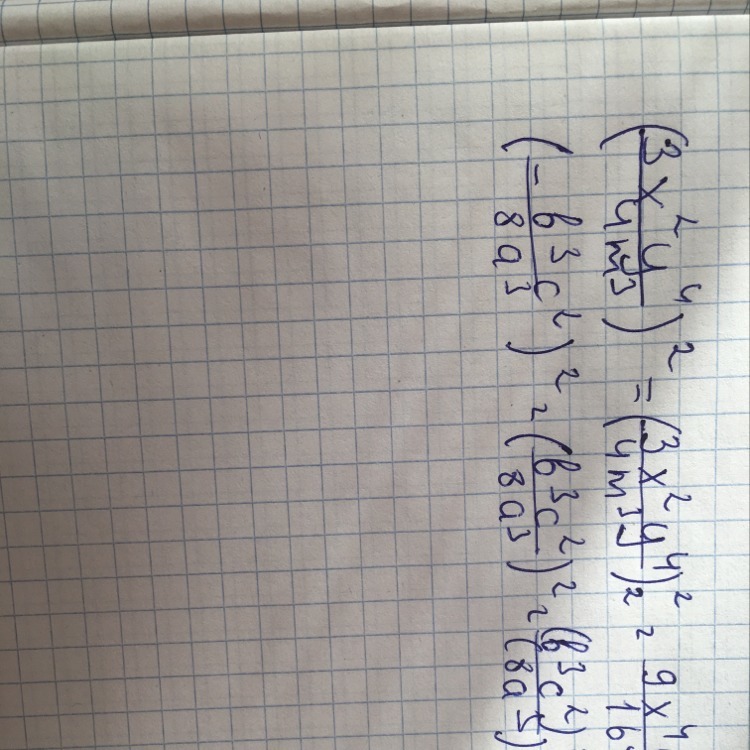 (3x²y⁴/4m³)² = (3x²y⁴)²/(4m³)² = 9x⁴/16
(-b³c²/8a³)² = (b³c²/8a³)² = (b³c²)/(8a³)